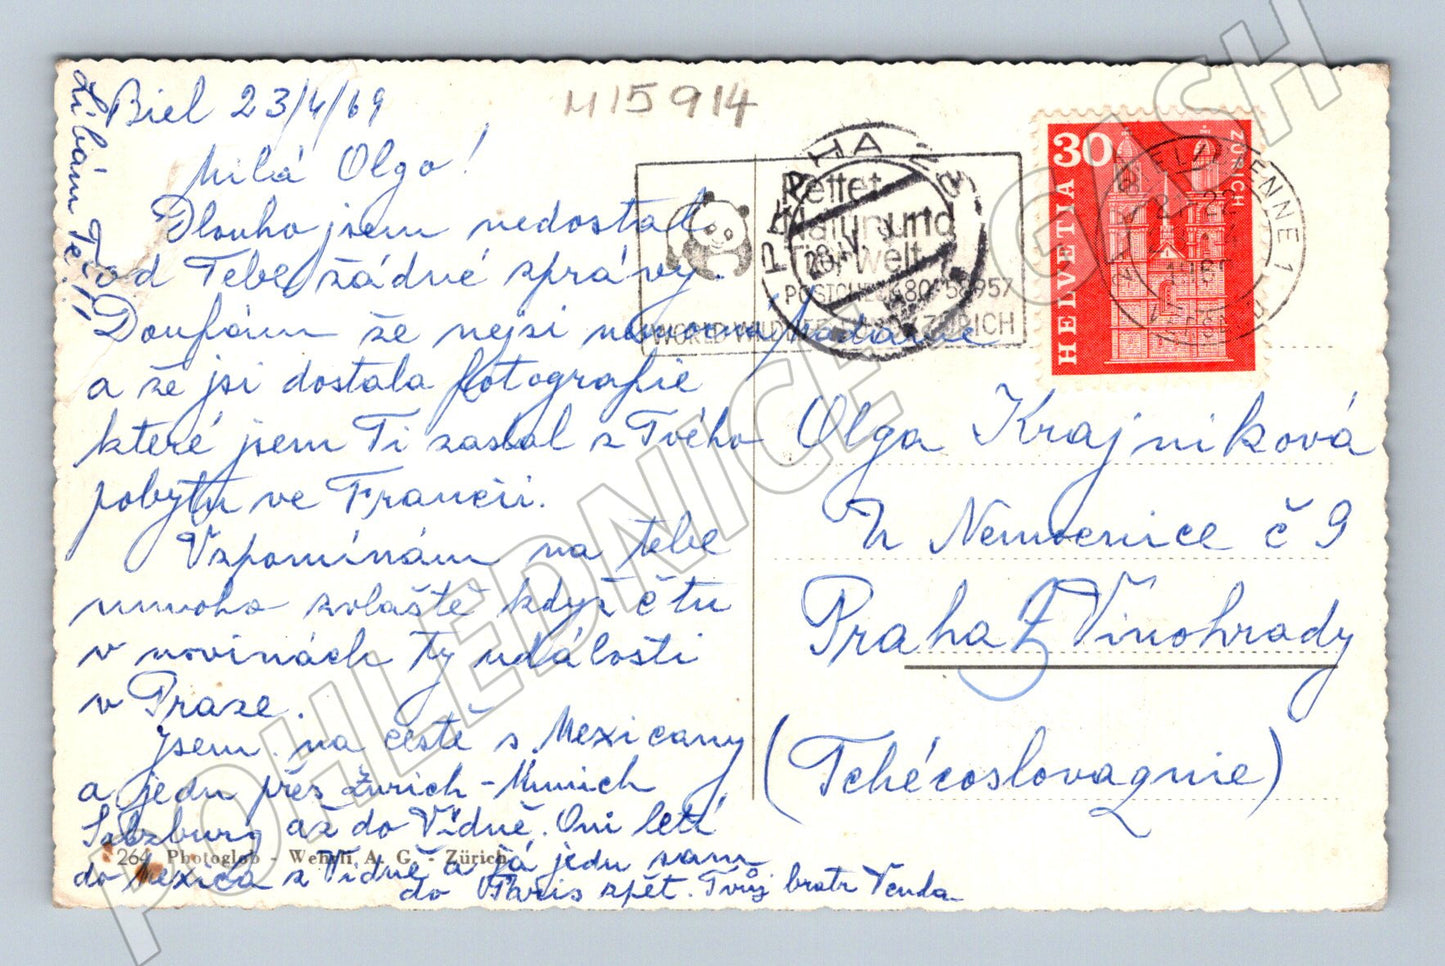 Biel 23/4/69
M15914
Milá Olgo!
Dlouho jsem nedostal
od Tebe žádné zprávy.
Doufám že nejsi nemocná
a že jsi dostala fotografie
které jsem Ti zaslal z Tvého
pobytu ve Francii.
Vzpomínám na tebe
mnoho zvláště když čtu
v novinách ty události
v Praze.
Jsem na cestě s Mexicany
a jedu přes Zurich - Munich
Salzburg až do Vídně. Oni letí
do Mexica z Vídně a já jedu sam
do Paris zpět. Tvůj bratr Venda
Líbám Tě!!
264 Photoglob - Wehrli A. G. - Zürich
Rettet
Natur und
Umwelt
POSTCHECK 80-58957
WORLD WILDLIFE FUND ZÜRICH
PRAHA
BIEL/BIENNE 1
30
HELVETIA
ZÜRICH
Olga Krajníková
U Nemocnice č 9
Praha 2 Vinohrady
(Tchécoslovaquie)
POHLEDNICE GASH